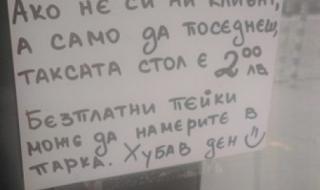 АКО НЕ СИ НИ КЛИЕНТ,
А САМО ДА ПОСЕДНЕШ,
ТАКСАТА СТОЛ Е 2⁰⁰ ЛВ
БЕЗПЛАТНИ ПЕЙКИ
МОЖЕ ДА НАМЕРИТЕ В
ПАРКА. ХУБАВ ДЕН